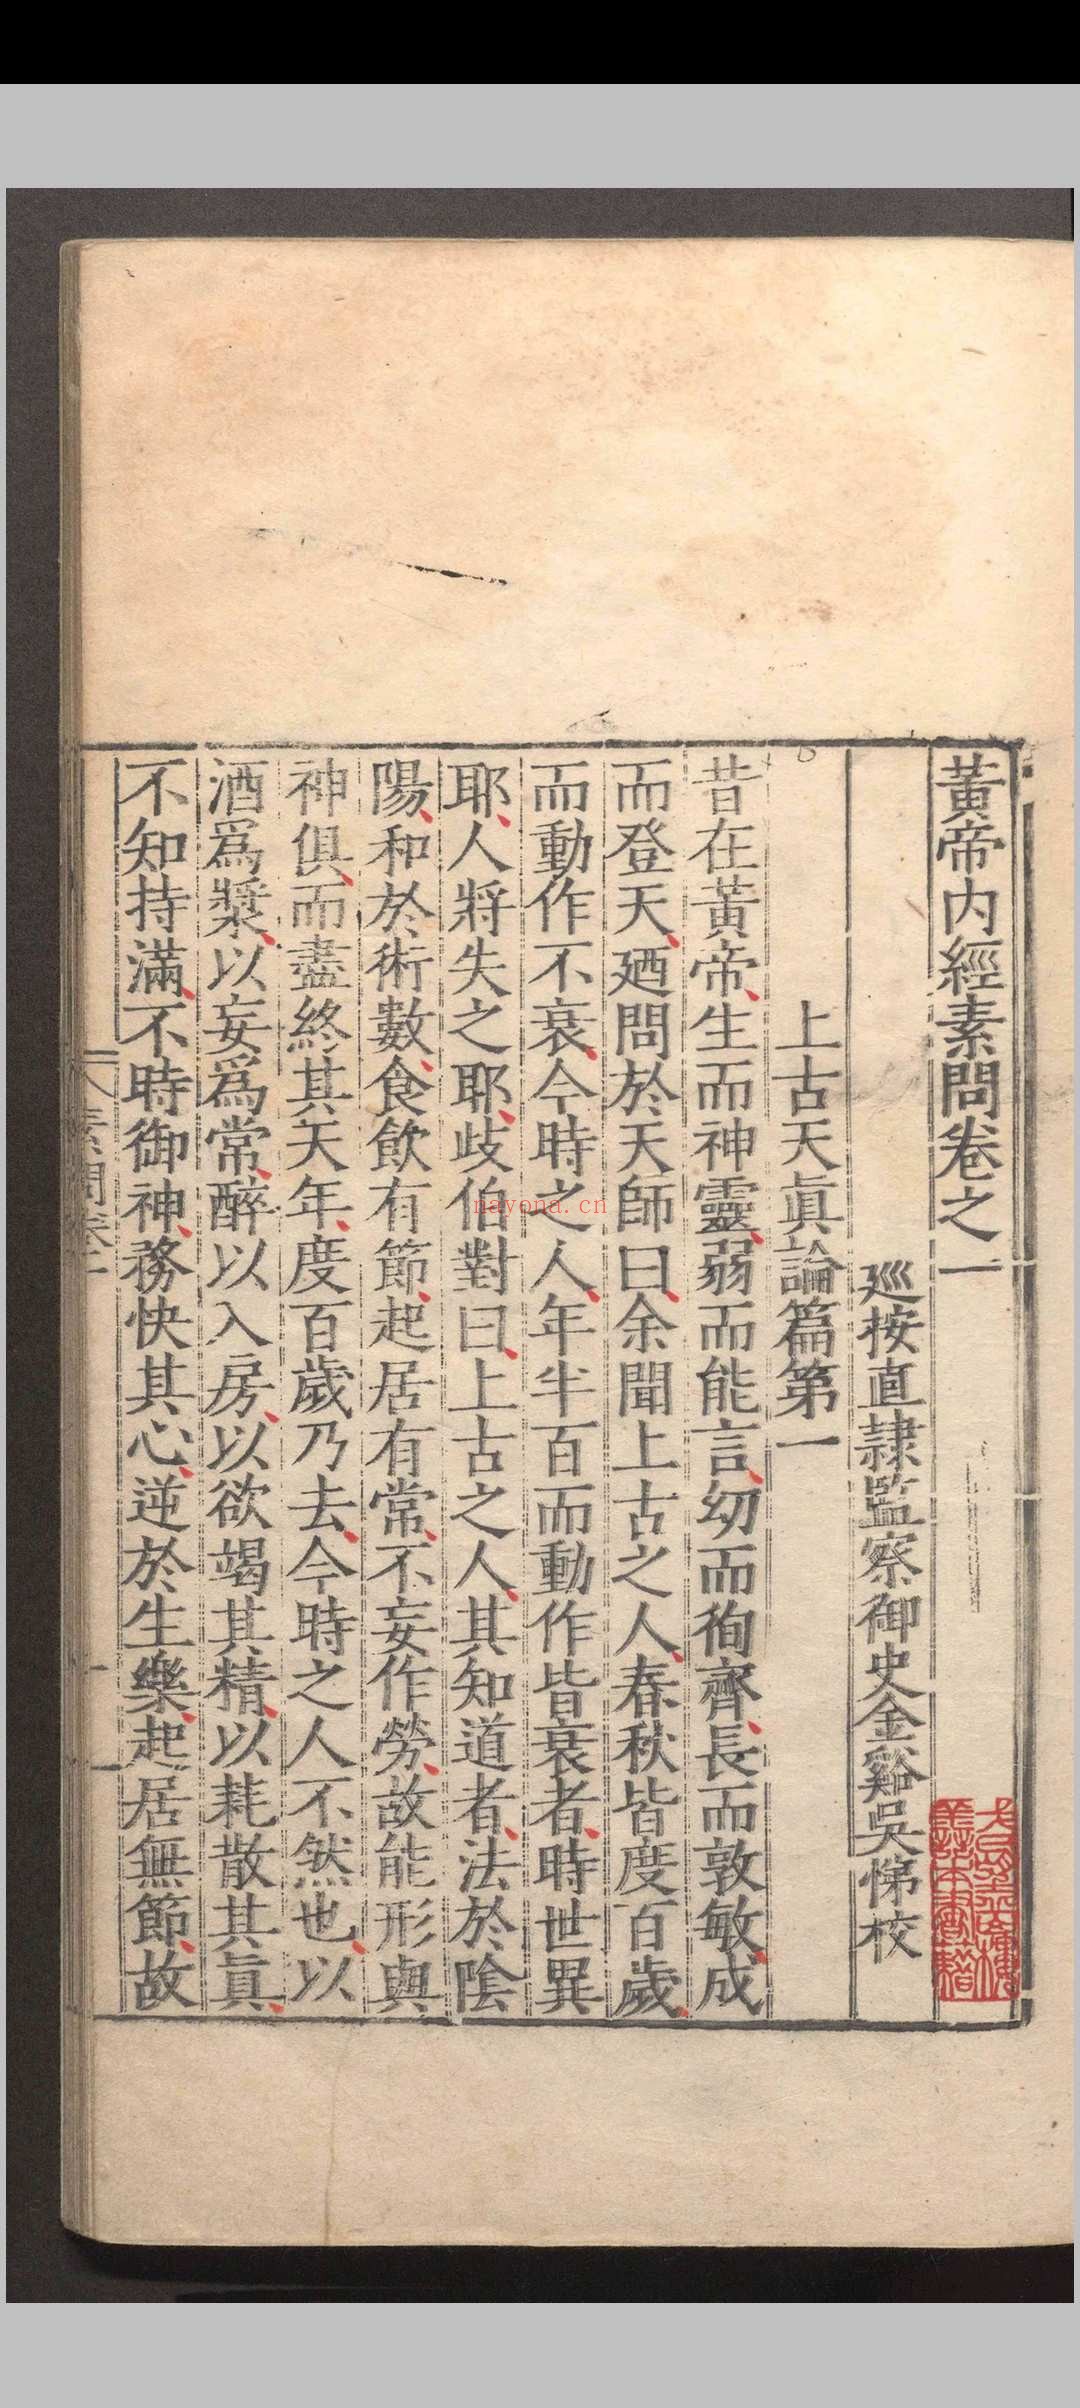 黃帝內經素問卷之一
巡按直隸監察御史金谿吳悌校
上古天眞論篇第一
昔在黃帝生而神靈弱而能言幼而徇齊長而敦敏成
而登天廼問於天師曰余聞上古之人春秋皆度百歲
而動作不衰今時之人年半百而動作皆衰者時世異
耶人將失之耶歧伯對曰上古之人其知道者法於陰
陽和於術數食飮有節起居有常不妄作勞故能形與
神俱而盡終其天年度百歲乃去今時之人不然也以
酒爲漿以妄爲常醉以入房以欲竭其精以耗散其眞
不知持滿不時御神務快其心逆於生樂起居無節故
nayona.cn